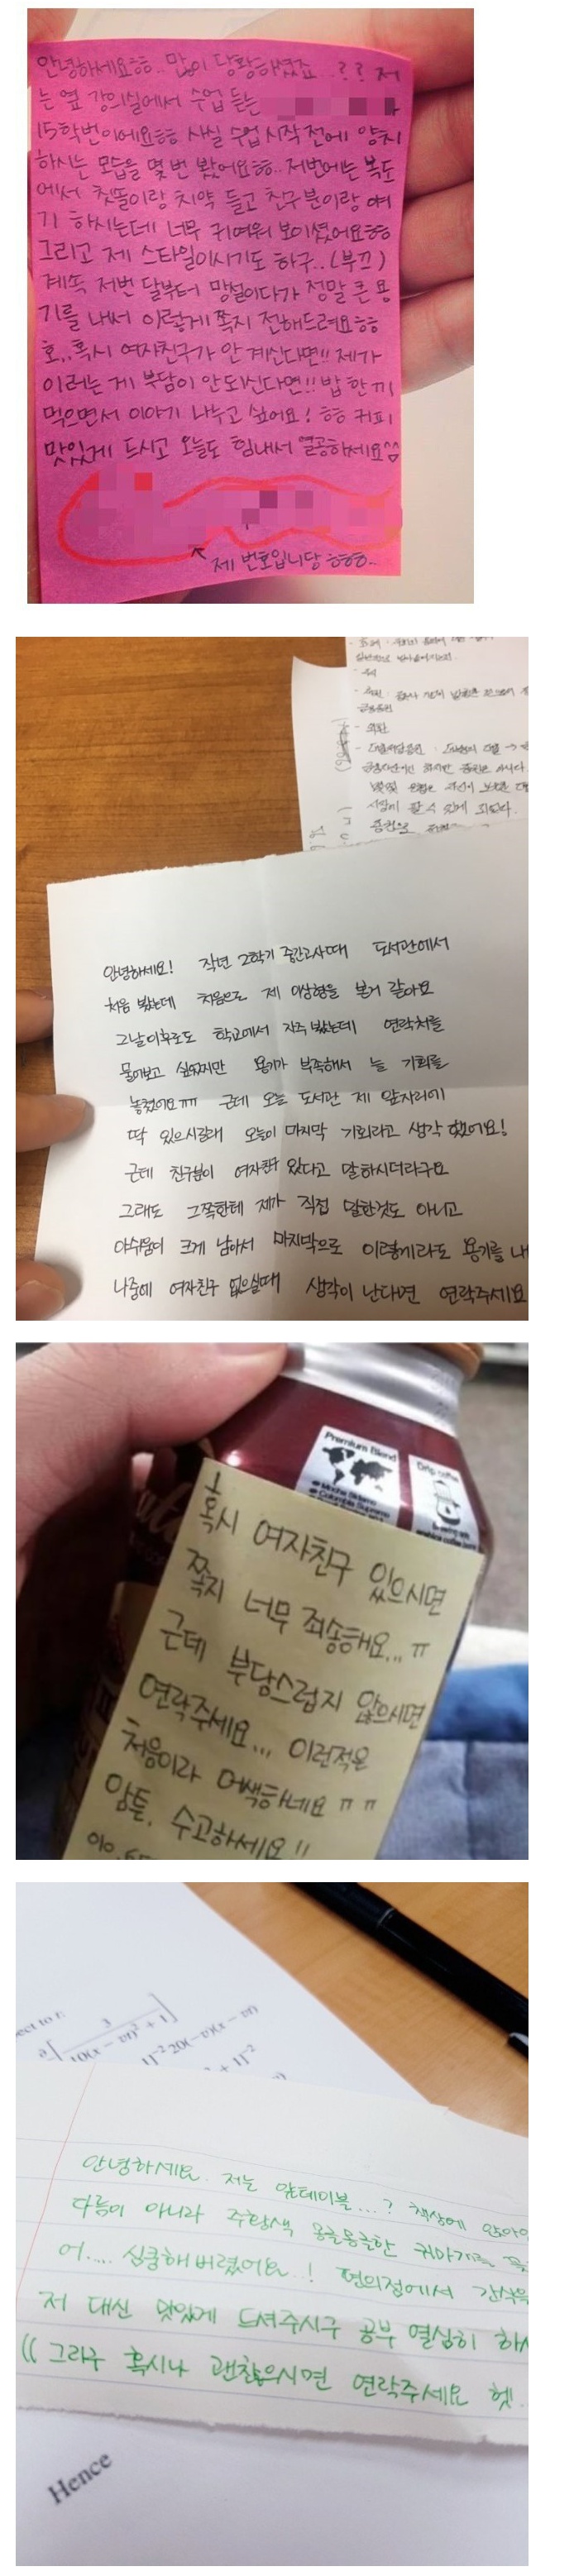 안녕하세요ㅎㅎ.. 많이 당황하셨죠..?? 저
는 옆 강의실에서 수업 듣는
15학번이에요ㅎㅎ 사실 수업 시작 전에 양치
하시는 모습을 몇 번 봤어요ㅎㅎ.. 저번에는 복도
에서 칫솔이랑 치약 들고 친구분이랑 얘
기 하시는데 너무 귀여워 보이셨어요ㅎㅎ
그리고 제 스타일이시기도 하구..(부끄)
계속 저번 달부터 망설이다가 정말 큰 용
기를 내서 이렇게 쪽지 전해드려요ㅎㅎ
호,,혹시 여자친구가 안 계신다면!! 제가
이러는 게 부담이 안되신다면!! 밥 한 끼
먹으면서 이야기 나누고 싶어요! ㅎㅎ 커피
맛있게 드시고 오늘도 힘내서 열공하세요^^
제 번호입니당 ㅎㅎㅎ..
안녕하세요! 작년 2학기 중간고사때 도서관에서
처음 봤는데 처음으로 제 이상형을 본거 같아요
그날이후로도 학교에서 자주 봤는데 연락처를
물어보고 싶었지만 용기가 부족해서 늘 기회를
놓쳤어요ㅠㅠ 근데 오늘 도서관 제 앞자리에
딱 있으시길래 오늘이 마지막 기회라고 생각 했어요!
근데 친구분이 여자친구 있다고 말하시더라구요
그래도 그쪽한테 제가 직접 말한것도 아니고
아쉬움이 크게 남아서 마지막으로 이렇게라도 용기를 내
나중에 여자친구 없으실때 생각이 난다면 연락주세요
Premium Blend
Drip coffee
혹시 여자친구 있으시면
쪽지 너무 죄송해요... ㅠ
근데 부담스럽지 않으시면
연락주세요... 이런적은
처음이라 어색하네요 ㅠㅠ
암튼, 수고하세요!!
안녕하세요. 저는 앞테이블...? 책상에 앉아있
다름이 아니라 주황색 몽글몽글한 귀마개를
어.... 심쿵해버렸어요..! 편의점에서 간식을
저 대신 맛있게 드셔주시구 공부 열심히 하시
(( 그리구 혹시나 괜찮으시면 연락주세요 헷!
Hence